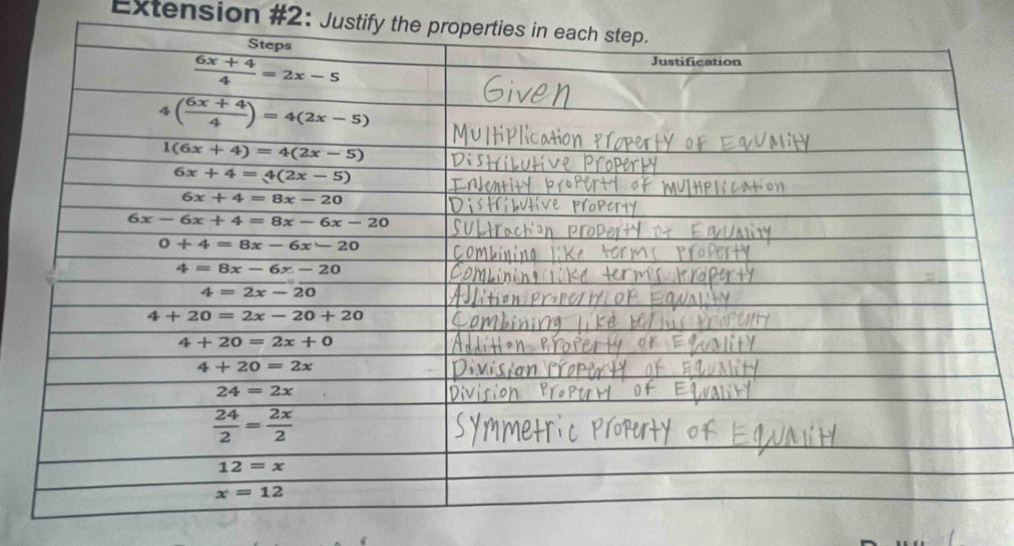 Extension #2: Justify the properties in each step.
Steps Justification
(6x + 4)/4 = 2x − 5 Given
4((6x + 4)/4) = 4(2x − 5) Multiplication Property of Equality
1(6x + 4) = 4(2x − 5) Distributive Property
6x + 4 = 4(2x − 5) Indentity property of multiplication
6x + 4 = 8x − 20 Distributive property
6x − 6x + 4 = 8x − 6x − 20 Subtraction property of Equality
0 + 4 = 8x − 6x − 20 Combining like terms property
4 = 8x − 6x − 20 Combining like terms property
4 = 2x − 20 Addition property of Equality
4 + 20 = 2x − 20 + 20 Combining like terms property
4 + 20 = 2x + 0 Addition Property of Equality
4 + 20 = 2x Division Property of Equality
24 = 2x Division Property of Equality
24/2 = 2x/2 Symmetric Property of Equality
12 = x
x = 12